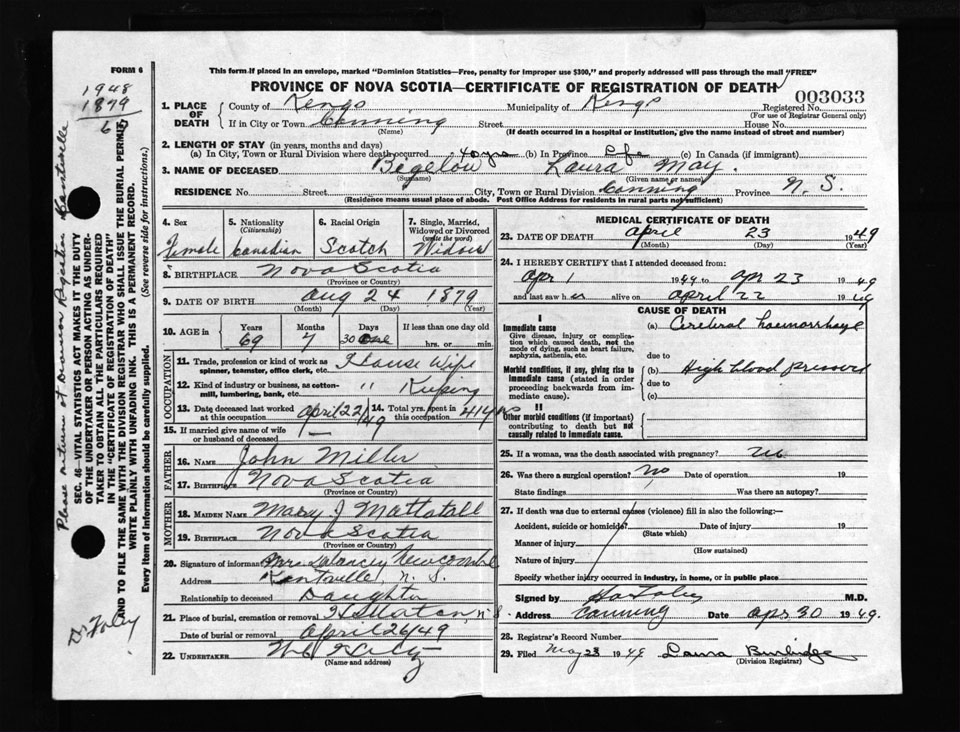 FORM 6
This form if placed in an envelope, marked "Dominion Statistics—Free, penalty for improper use $300," and properly addressed will pass through the mail "FREE"
PROVINCE OF NOVA SCOTIA—CERTIFICATE OF REGISTRATION OF DEATH
003033
1948
1879
1. PLACE OF DEATH
County of Kings Municipality of Kings Registered No.
(For use of Registrar General only)
If in City or Town Canning Street House No.
(Name) (If death occurred in a hospital or institution, give the name instead of street and number)
2. LENGTH OF STAY (in years, months and days)
(a) In City, Town or Rural Division where death occurred 40 yrs (b) In Province Life (c) In Canada (if immigrant)
3. NAME OF DECEASED Bigelow Laura May.
(Surname) (Given name or names)
RESIDENCE No. Street City, Town or Rural Division Canning Province N. S.
(Residence means usual place of abode. Post Office Address for residents in rural parts not sufficient)
4. Sex Female
5. Nationality (Citizenship) Canadian
6. Racial Origin Scotch
7. Single, Married, Widowed or Divorced (write the word) Widow
8. BIRTHPLACE Nova Scotia
(Province or Country)
9. DATE OF BIRTH Aug 24 1879
(Month) (Day) (Year)
10. AGE in Years Months Days If less than one day old
69 7 30 hrs. or min.
OCCUPATION
11. Trade, profession or kind of work as spinner, teamster, office clerk, etc. House Wife
12. Kind of industry or business, as cotton-mill, lumbering, bank, etc. " Keeping
13. Date deceased last worked at this occupation April 22/49
14. Total yrs. spent in this occupation 41 yrs
15. If married give name of wife or husband of deceased
FATHER
16. NAME John Miller
17. BIRTHPLACE Nova Scotia
(Province or Country)
MOTHER
18. MAIDEN NAME Mary J Mattatall
19. BIRTHPLACE Nova Scotia
(Province or Country)
20. Signature of informant Mrs Delancey Newcombe
Address Kentville, N. S.
Relationship to deceased Daughter
21. Place of burial, cremation or removal N.S.
Date of burial or removal April 26/49
22. UNDERTAKER
(Name and address)
MEDICAL CERTIFICATE OF DEATH
23. DATE OF DEATH April 23 1949
(Month) (Day) (Year)
24. I HEREBY CERTIFY that I attended deceased from:
Apr 1 1949 to Apr 23 1949
and last saw her alive on April 22 1949
CAUSE OF DEATH
I
Immediate cause
Give disease, injury or complication which caused death, not the mode of dying, such as heart failure, asphyxia, asthenia, etc.
(a) Cerebral haemorrhage
due to
Morbid conditions, if any, giving rise to immediate cause (stated in order proceeding backwards from immediate cause).
(b) High blood pressure
due to
(c)
II
Other morbid conditions (if important) contributing to death but not causally related to immediate cause.
25. If a woman, was the death associated with pregnancy? no
26. Was there a surgical operation? no Date of operation 19
State findings Was there an autopsy?
27. If death was due to external causes (violence) fill in also the following:—
Accident, suicide or homicide? Date of injury 19
(State which)
Manner of injury
(How sustained)
Nature of injury
Specify whether injury occurred in industry, in home, or in public place
Signed by M.D.
Address Canning Date Apr 30 1949.
28. Registrar's Record Number
29. Filed May 23 1949 Laura Burbidge
(Division Registrar)
Dr Foley
Please
SEC. 46—VITAL STATISTICS ACT MAKES IT THE DUTY
OF THE UNDERTAKER OR PERSON ACTING AS UNDER-
TAKER TO OBTAIN ALL THE PARTICULARS REQUIRED
IN THE "CERTIFICATE OF REGISTRATION OF DEATH"
AND TO FILE THE SAME WITH THE DIVISION REGISTRAR WHO SHALL ISSUE THE BURIAL PERMIT
WRITE PLAINLY WITH UNFADING INK. THIS IS A PERMANENT RECORD.
Every item of Information should be carefully supplied. (See reverse side for instructions.)